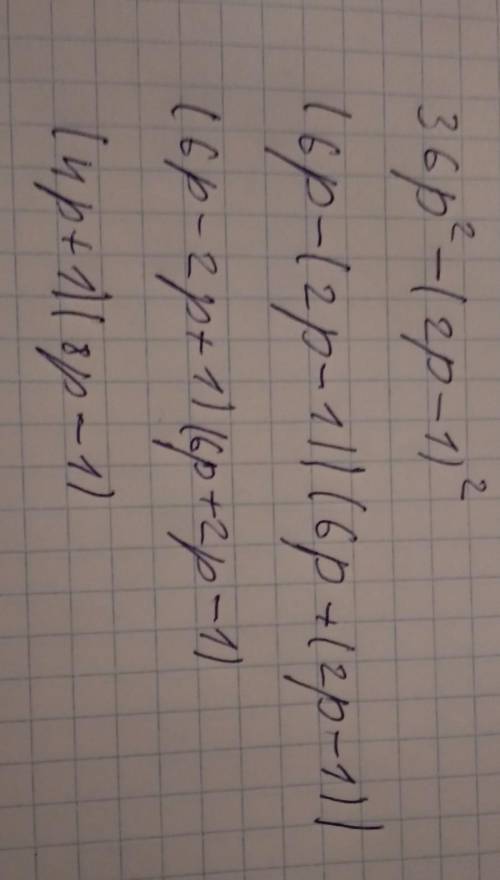 36p² - (2p - 1)²
(6p - (2p - 1))(6p + (2p - 1))
(6p - 2p + 1)(6p + 2p - 1)
(4p + 1)(8p - 1)